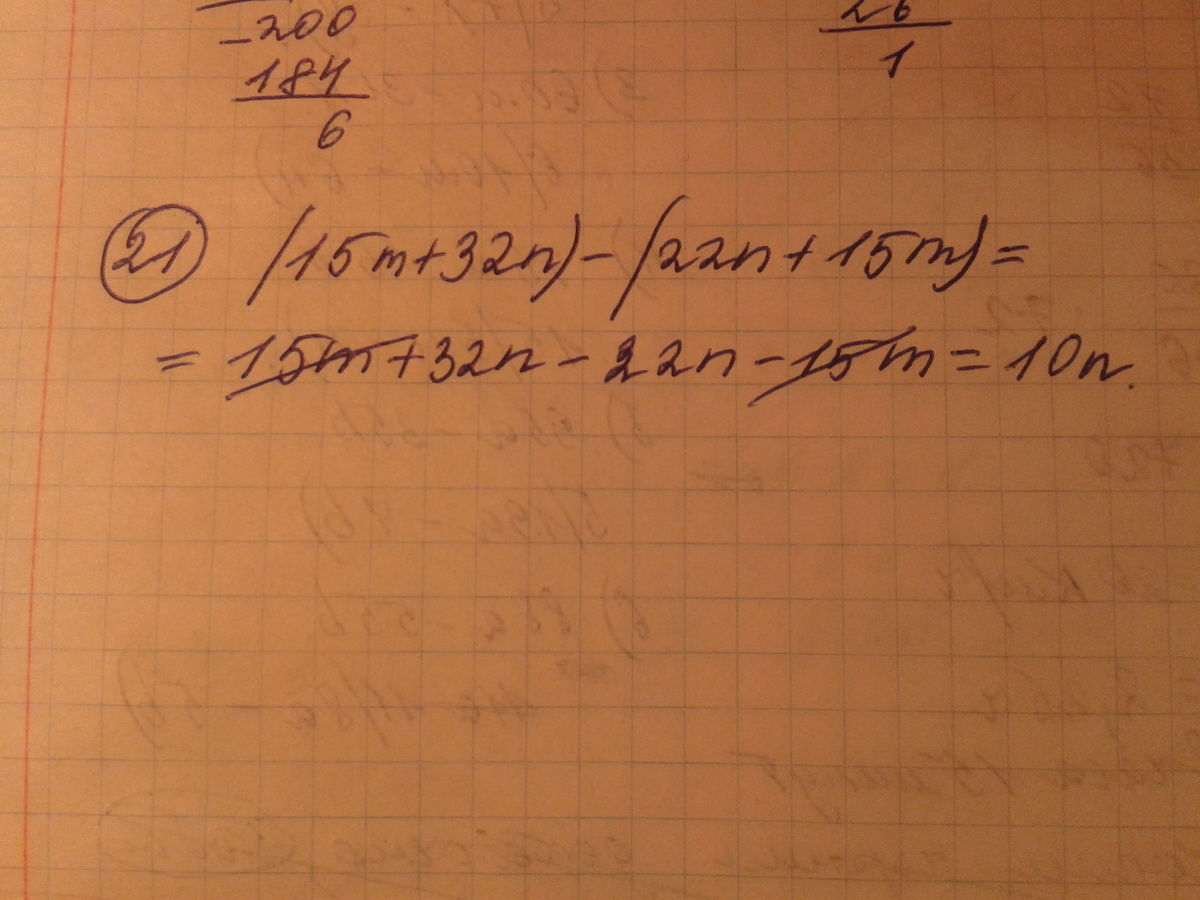 -200
184
6
26
1
21 (15m+32n)-(22n+15m)=
=15m+32n-22n-15m=10n.